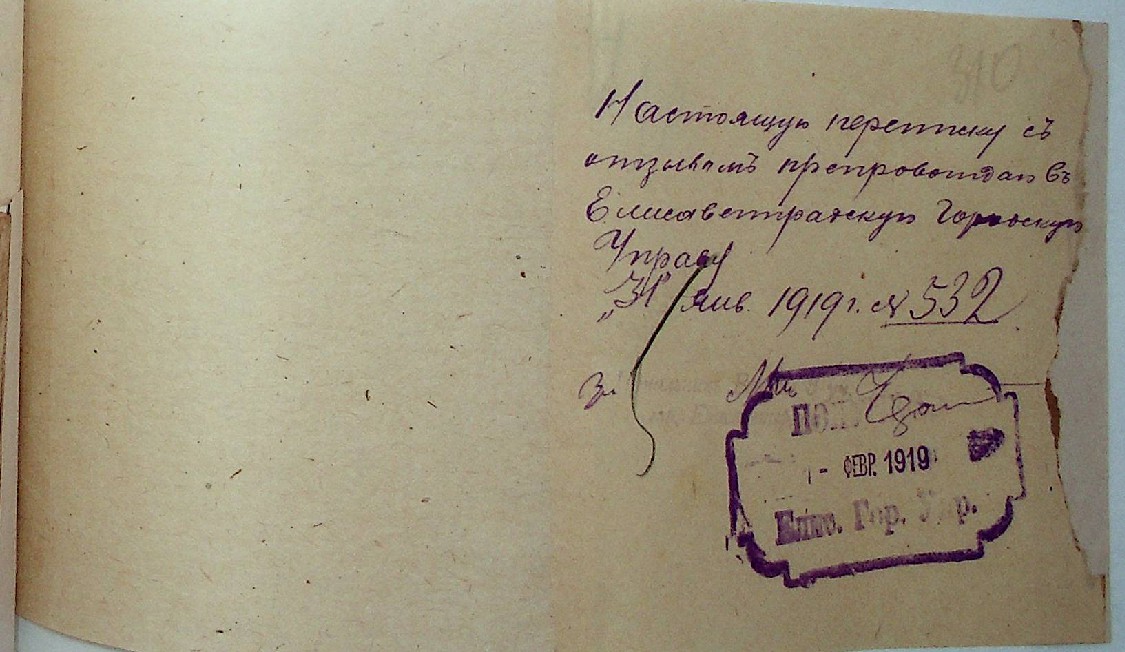 310
Настоящую переписку съ
отзывомъ препровождаю въ
Елисаветградскую Городскую
Управу
„31" Янв. 1919 г. № 532
За
ПОЛ
1 - ФЕВР. 1919
Елис. Гор. Упр.